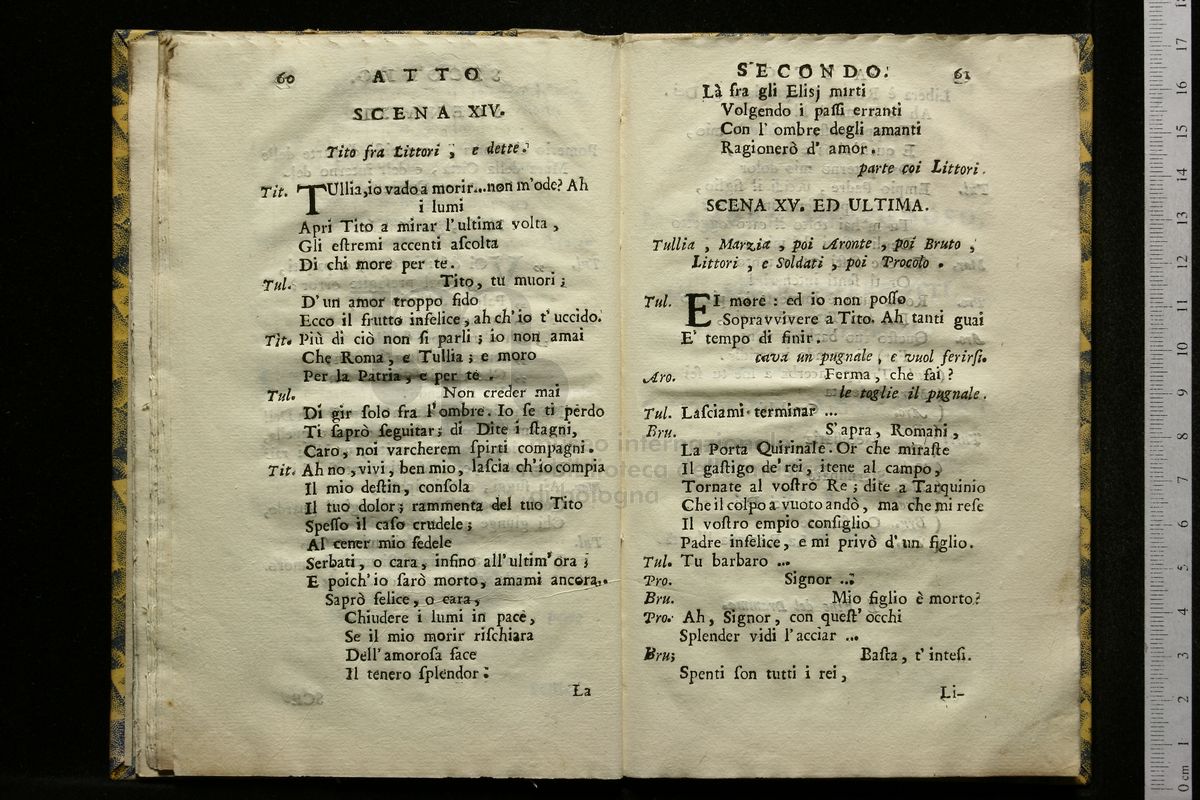 60
ATTO
SCENA XIV.
Tito fra Littori, e dette.
Tit. TUllia, io vado a morir...non m'ode? Ah
i lumi
Apri Tito a mirar l'ultima volta,
Gli eſtremi accenti aſcolta
Di chi more per te.
Tul. Tito, tu muori;
D'un amor troppo fido
Ecco il frutto infelice, ah ch'io t'uccido.
Tit. Più di ciò non ſi parli; io non amai
Che Roma, e Tullia; e moro
Per la Patria, e per te.
Tul. Non creder mai
Di gir ſolo fra l'ombre. Io ſe ti perdo
Ti ſaprò ſeguitar; di Dite i ſtagni,
Caro, noi varcherem ſpirti compagni.
Tit. Ah no, vivi, ben mio, laſcia ch'io compia
Il mio deſtin, conſola
Il tuo dolor; rammenta del tuo Tito
Speſſo il caſo crudele;
Al cener mio fedele
Serbati, o cara, infino all'ultim'ora;
E poich'io ſarò morto, amami ancora.
Saprò felice, o cara,
Chiudere i lumi in pace,
Se il mio morir riſchiara
Dell'amoroſa face
Il tenero ſplendor:
La
SECONDO.
61
Là fra gli Elisj mirti
Volgendo i paſſi erranti
Con l'ombre degli amanti
Ragionerò d'amor.
parte coi Littori.
SCENA XV. ED ULTIMA.
Tullia, Marzia, poi Aronte, poi Bruto,
Littori, e Soldati, poi Procolo.
Tul. EI more: ed io non poſſo
Sopravvivere a Tito. Ah tanti guai
E' tempo di finir.
cava un pugnale, e vuol ferirſi.
Aro. Ferma, che fai?
le toglie il pugnale.
Tul. Laſciami terminar ...
Bru. S'apra, Romani,
La Porta Quirinale. Or che miraſte
Il gaſtigo de' rei, itene al campo,
Tornate al voſtro Re; dite a Tarquinio
Che il colpo a vuoto andò, ma che mi reſe
Il voſtro empio conſiglio
Padre infelice, e mi privò d'un figlio.
Tul. Tu barbaro ...
Pro. Signor ...
Bru. Mio figlio è morto?
Pro. Ah, Signor, con queſt'occhi
Splender vidi l'acciar ...
Bru; Baſta, t'inteſi.
Spenti ſon tutti i rei,
Li-